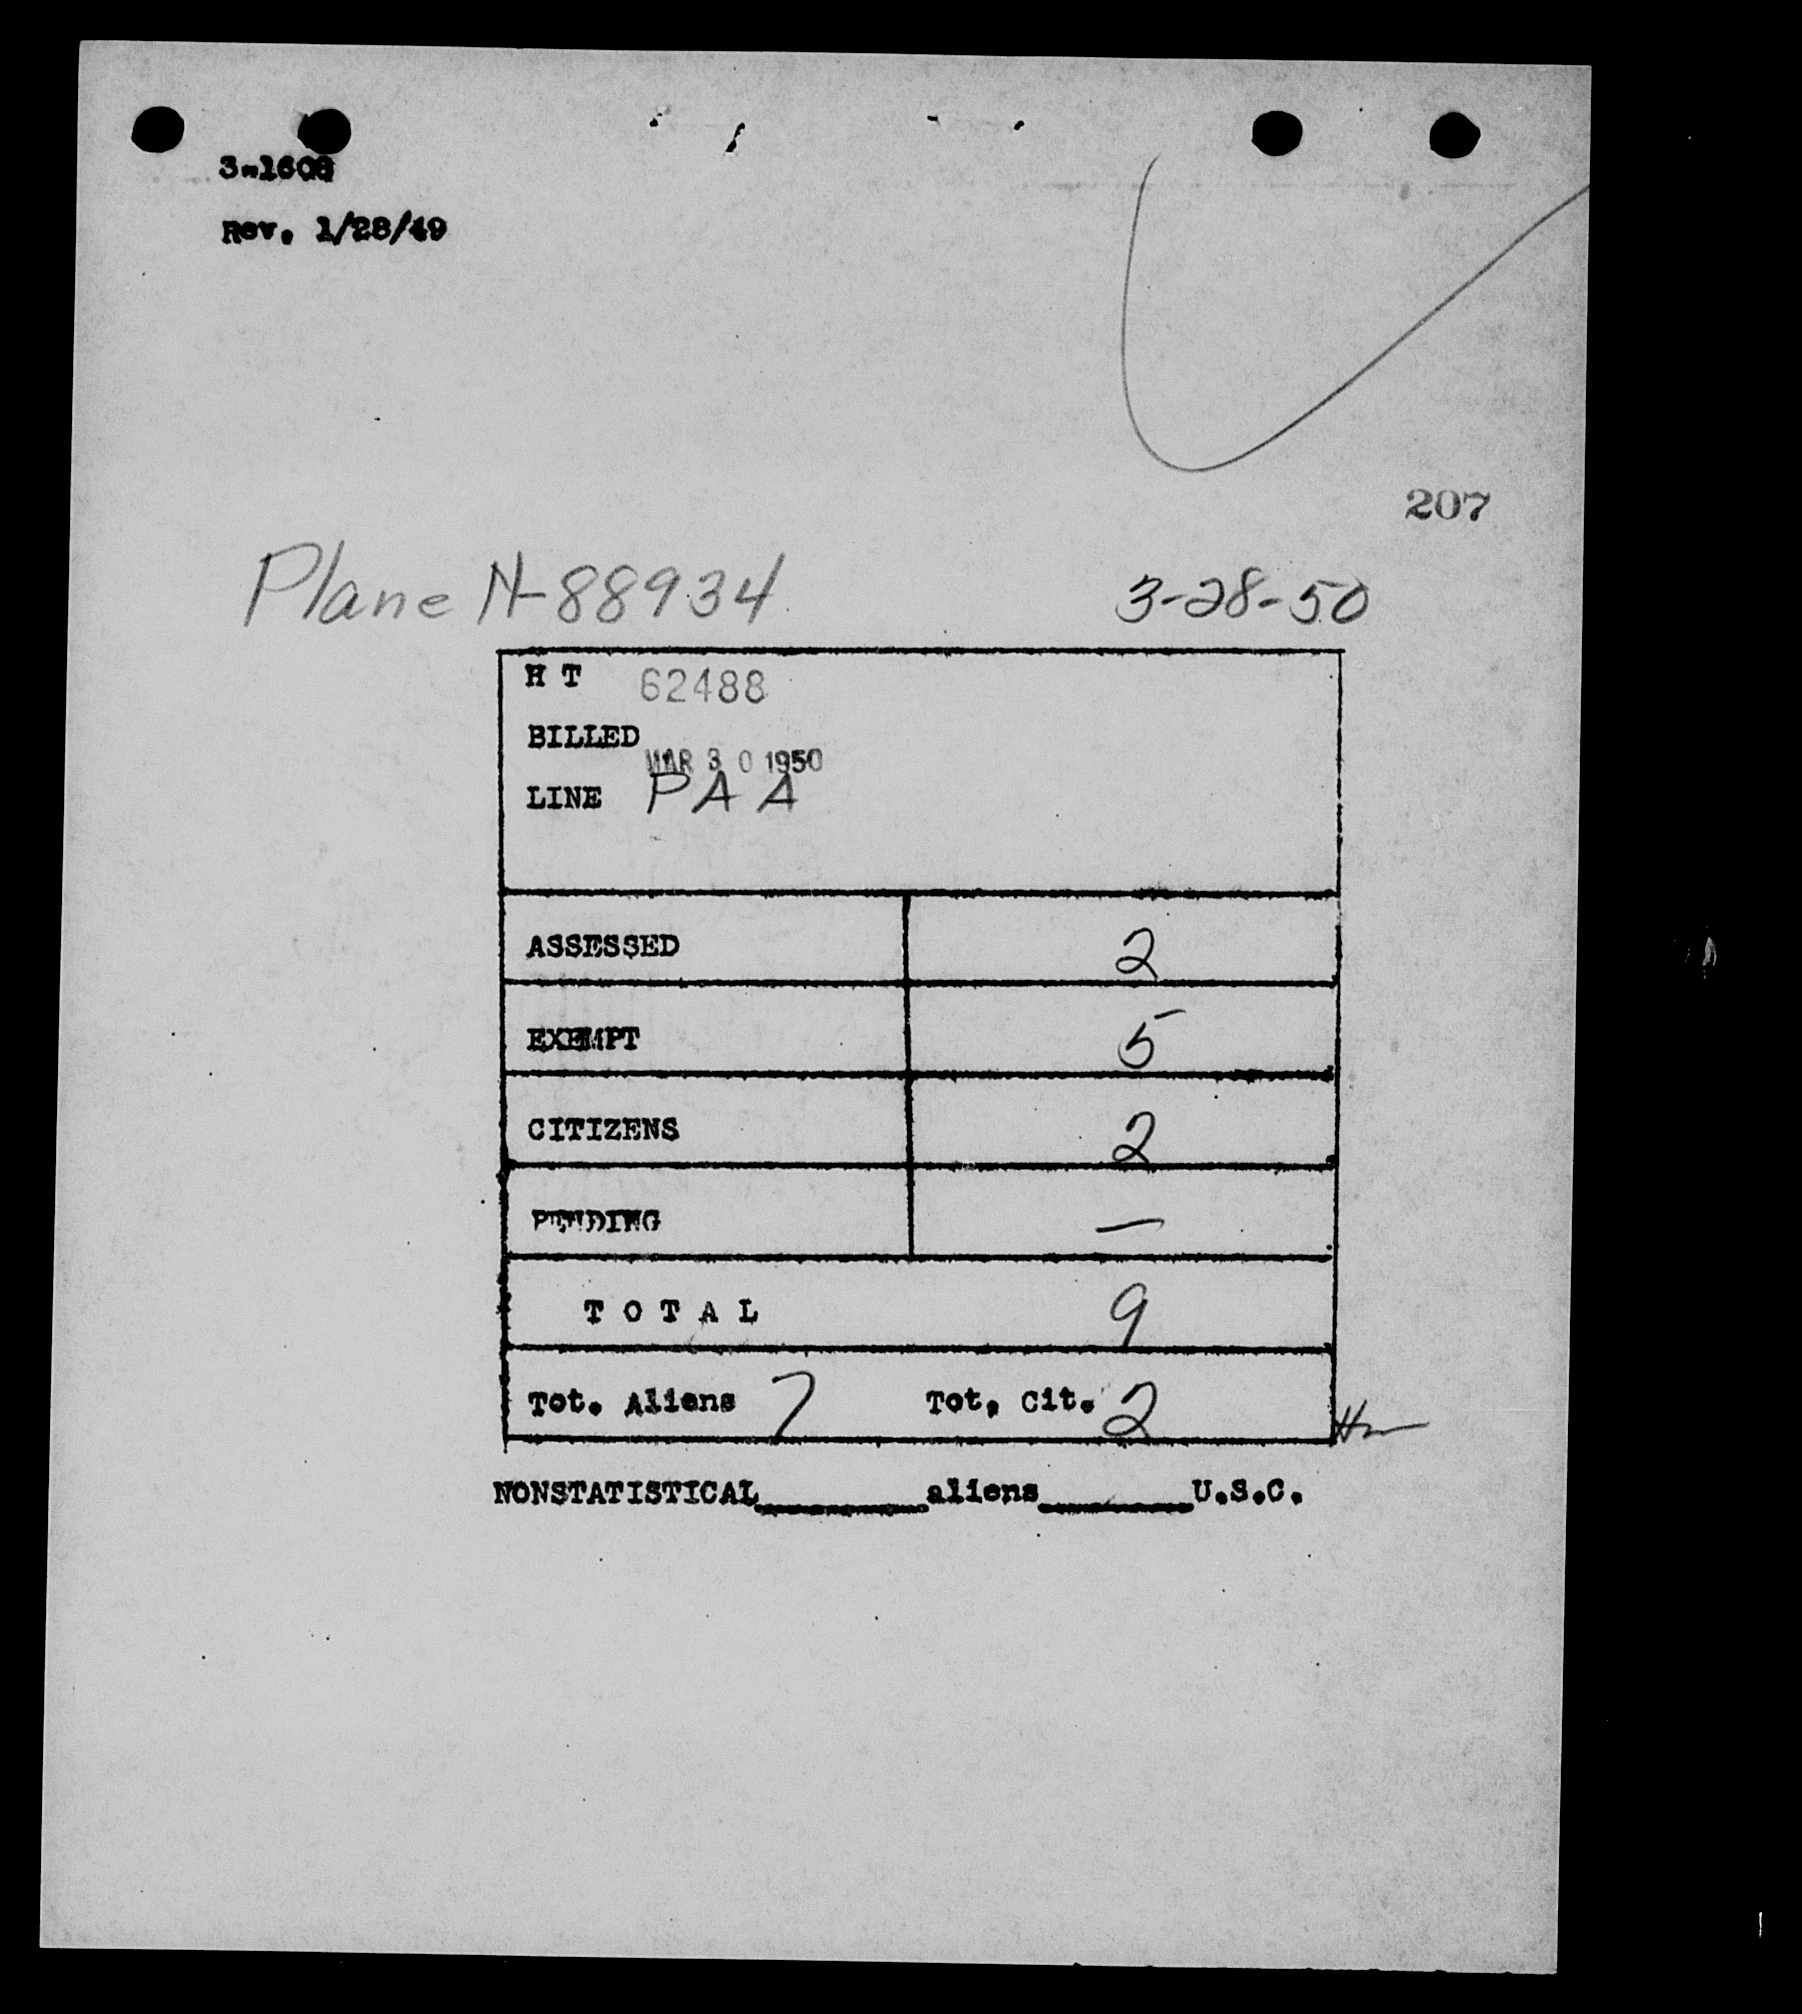 3-1608
Rev. 1/28/49
207
Plane N-88934 3-28-50
H T 62488
BILLED
MAR 30 1950
LINE PAA
ASSESSED 2
EXEMPT 5
CITIZENS 2
PENDING —
T O T A L 9
Tot. Aliens 7 Tot. Cit. 2
NONSTATISTICAL________aliens________U.S.C.